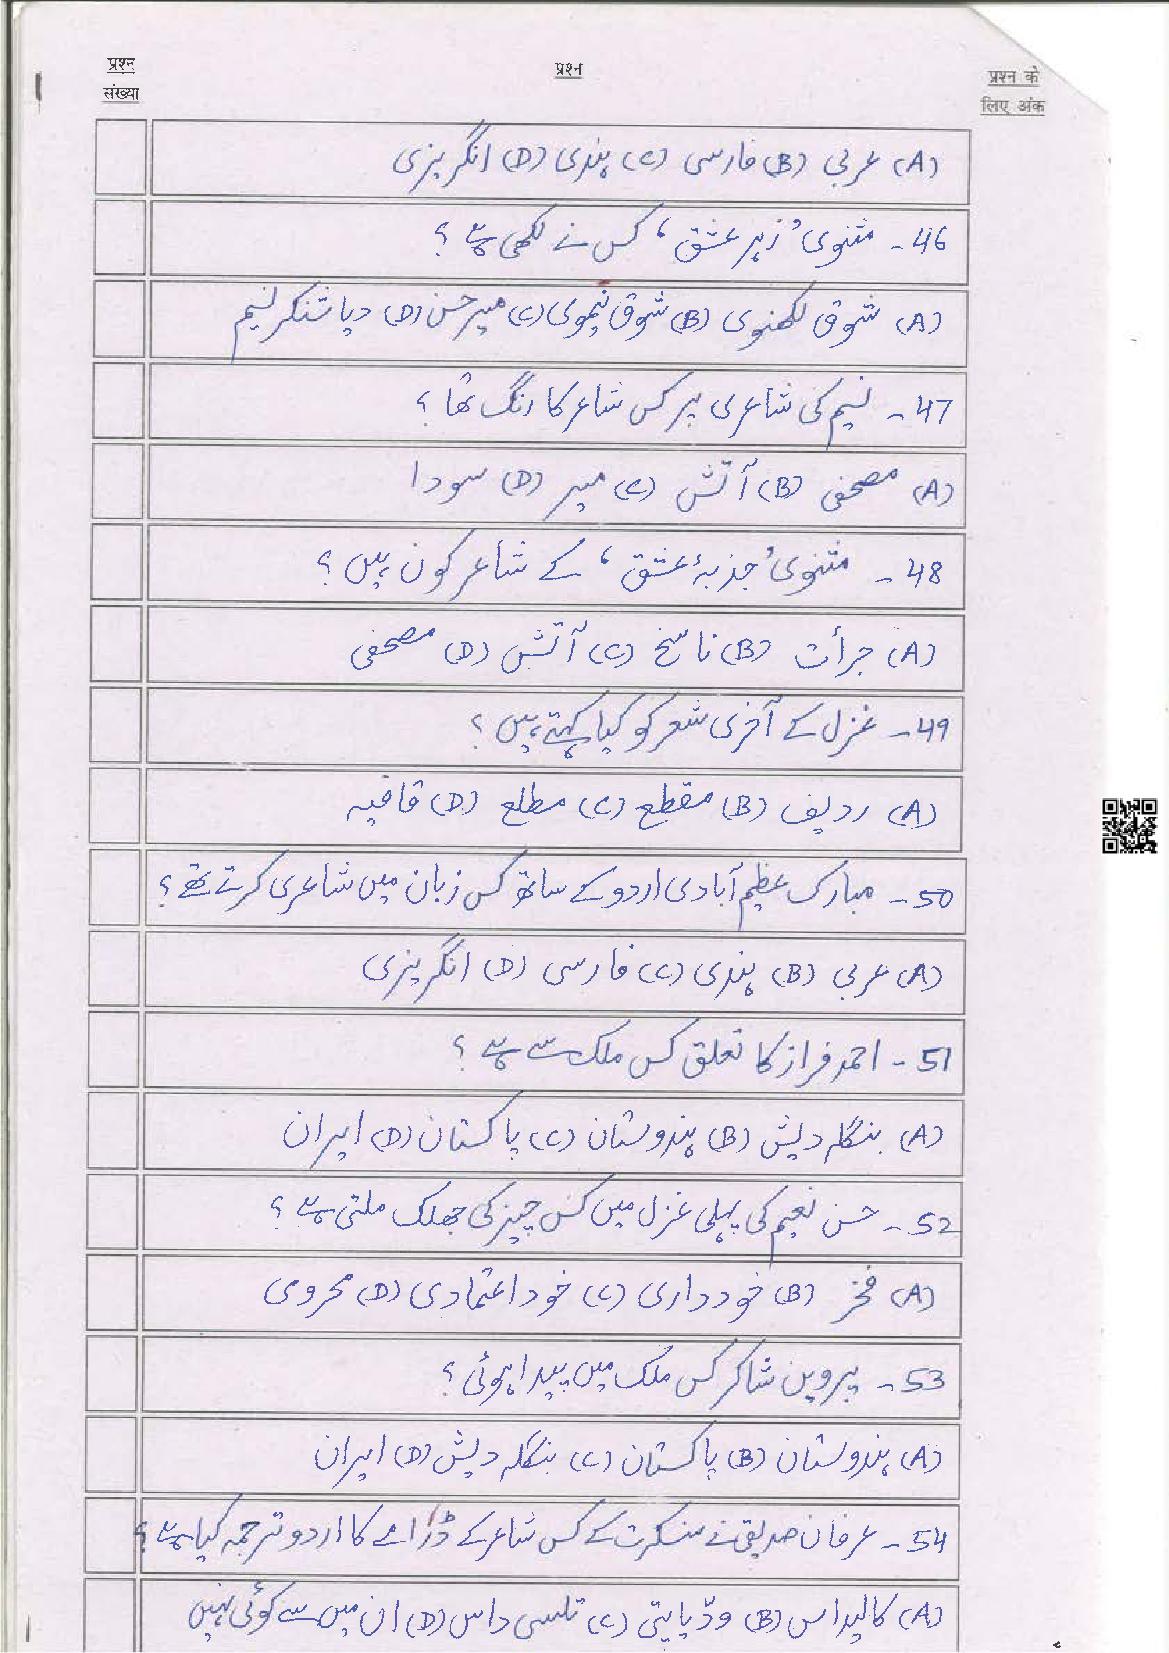 प्रश्न संख्या
प्रश्न
प्रश्न के लिए अंक
(A) عربی (B) فارسی (C) ہندی (D) انگریزی
46- مثنوی ’زہر عشق‘ کس نے لکھی ہے؟
(A) شوق لکھنوی (B) شوق نیموی (C) میر حسن (D) دیا شنکر نسیم
47- نسیم کی شاعری پر کس شاعر کا رنگ تھا؟
(A) مصحفی (B) آتش (C) میر (D) سودا
48- مثنوی ’جذبۂ عشق‘ کے شاعر کون ہیں؟
(A) جرأت (B) ناسخ (C) آتش (D) مصحفی
49- غزل کے آخری شعر کو کیا کہتے ہیں؟
(A) ردیف (B) مقطع (C) مطلع (D) قافیہ
50- مبارک عظیم آبادی اردو کے ساتھ کس زبان میں شاعری کرتے تھے؟
(A) عربی (B) ہندی (C) فارسی (D) انگریزی
51- احمد فراز کا تعلق کس ملک سے ہے؟
(A) بنگلہ دیش (B) ہندوستان (C) پاکستان (D) ایران
52- حسن نعیم کی پہلی غزل میں کس چیز کی جھلک ملتی ہے؟
(A) فخر (B) خودداری (C) خود اعتمادی (D) محرومی
53- پروین شاکر کس ملک میں پیدا ہوئی؟
(A) ہندوستان (B) پاکستان (C) بنگلہ دیش (D) ایران
54- عرفان صدیقی نے سنسکرت کے کس شاعر کے ڈرامے کا اردو ترجمہ کیا ہے؟
(A) کالیداس (B) ودّیاپتی (C) تلسی داس (D) ان میں سے کوئی نہیں